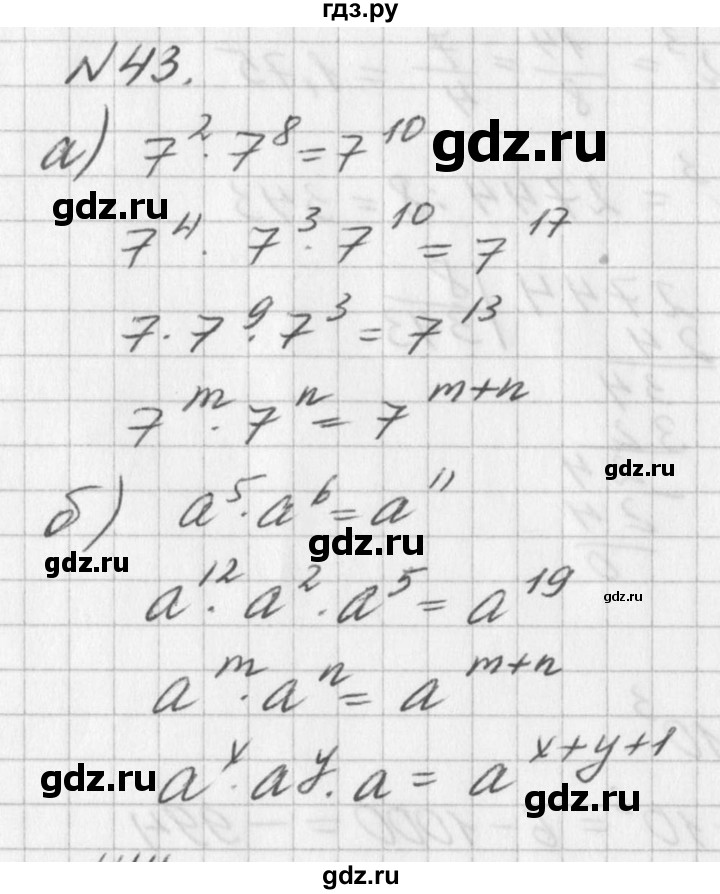 гдз.ру
№43.
а) 7² · 7⁸ = 7¹⁰
gdz.ru
gdz.ru
7⁴ · 7³ · 7¹⁰ = 7¹⁷
7 · 7⁹ · 7³ = 7¹³
7ᵐ · 7ⁿ = 7ᵐ⁺ⁿ
gdz.ru
б) a⁵ · a⁶ = a¹¹
gdz.ru
gdz.ru
a¹² · a² · a⁵ = a¹⁹
gdz.ru
aᵐ · aⁿ = aᵐ⁺ⁿ
aˣ · aʸ · a = aˣ⁺ʸ⁺¹
gdz.ru
gdz.ru
gdz.ru